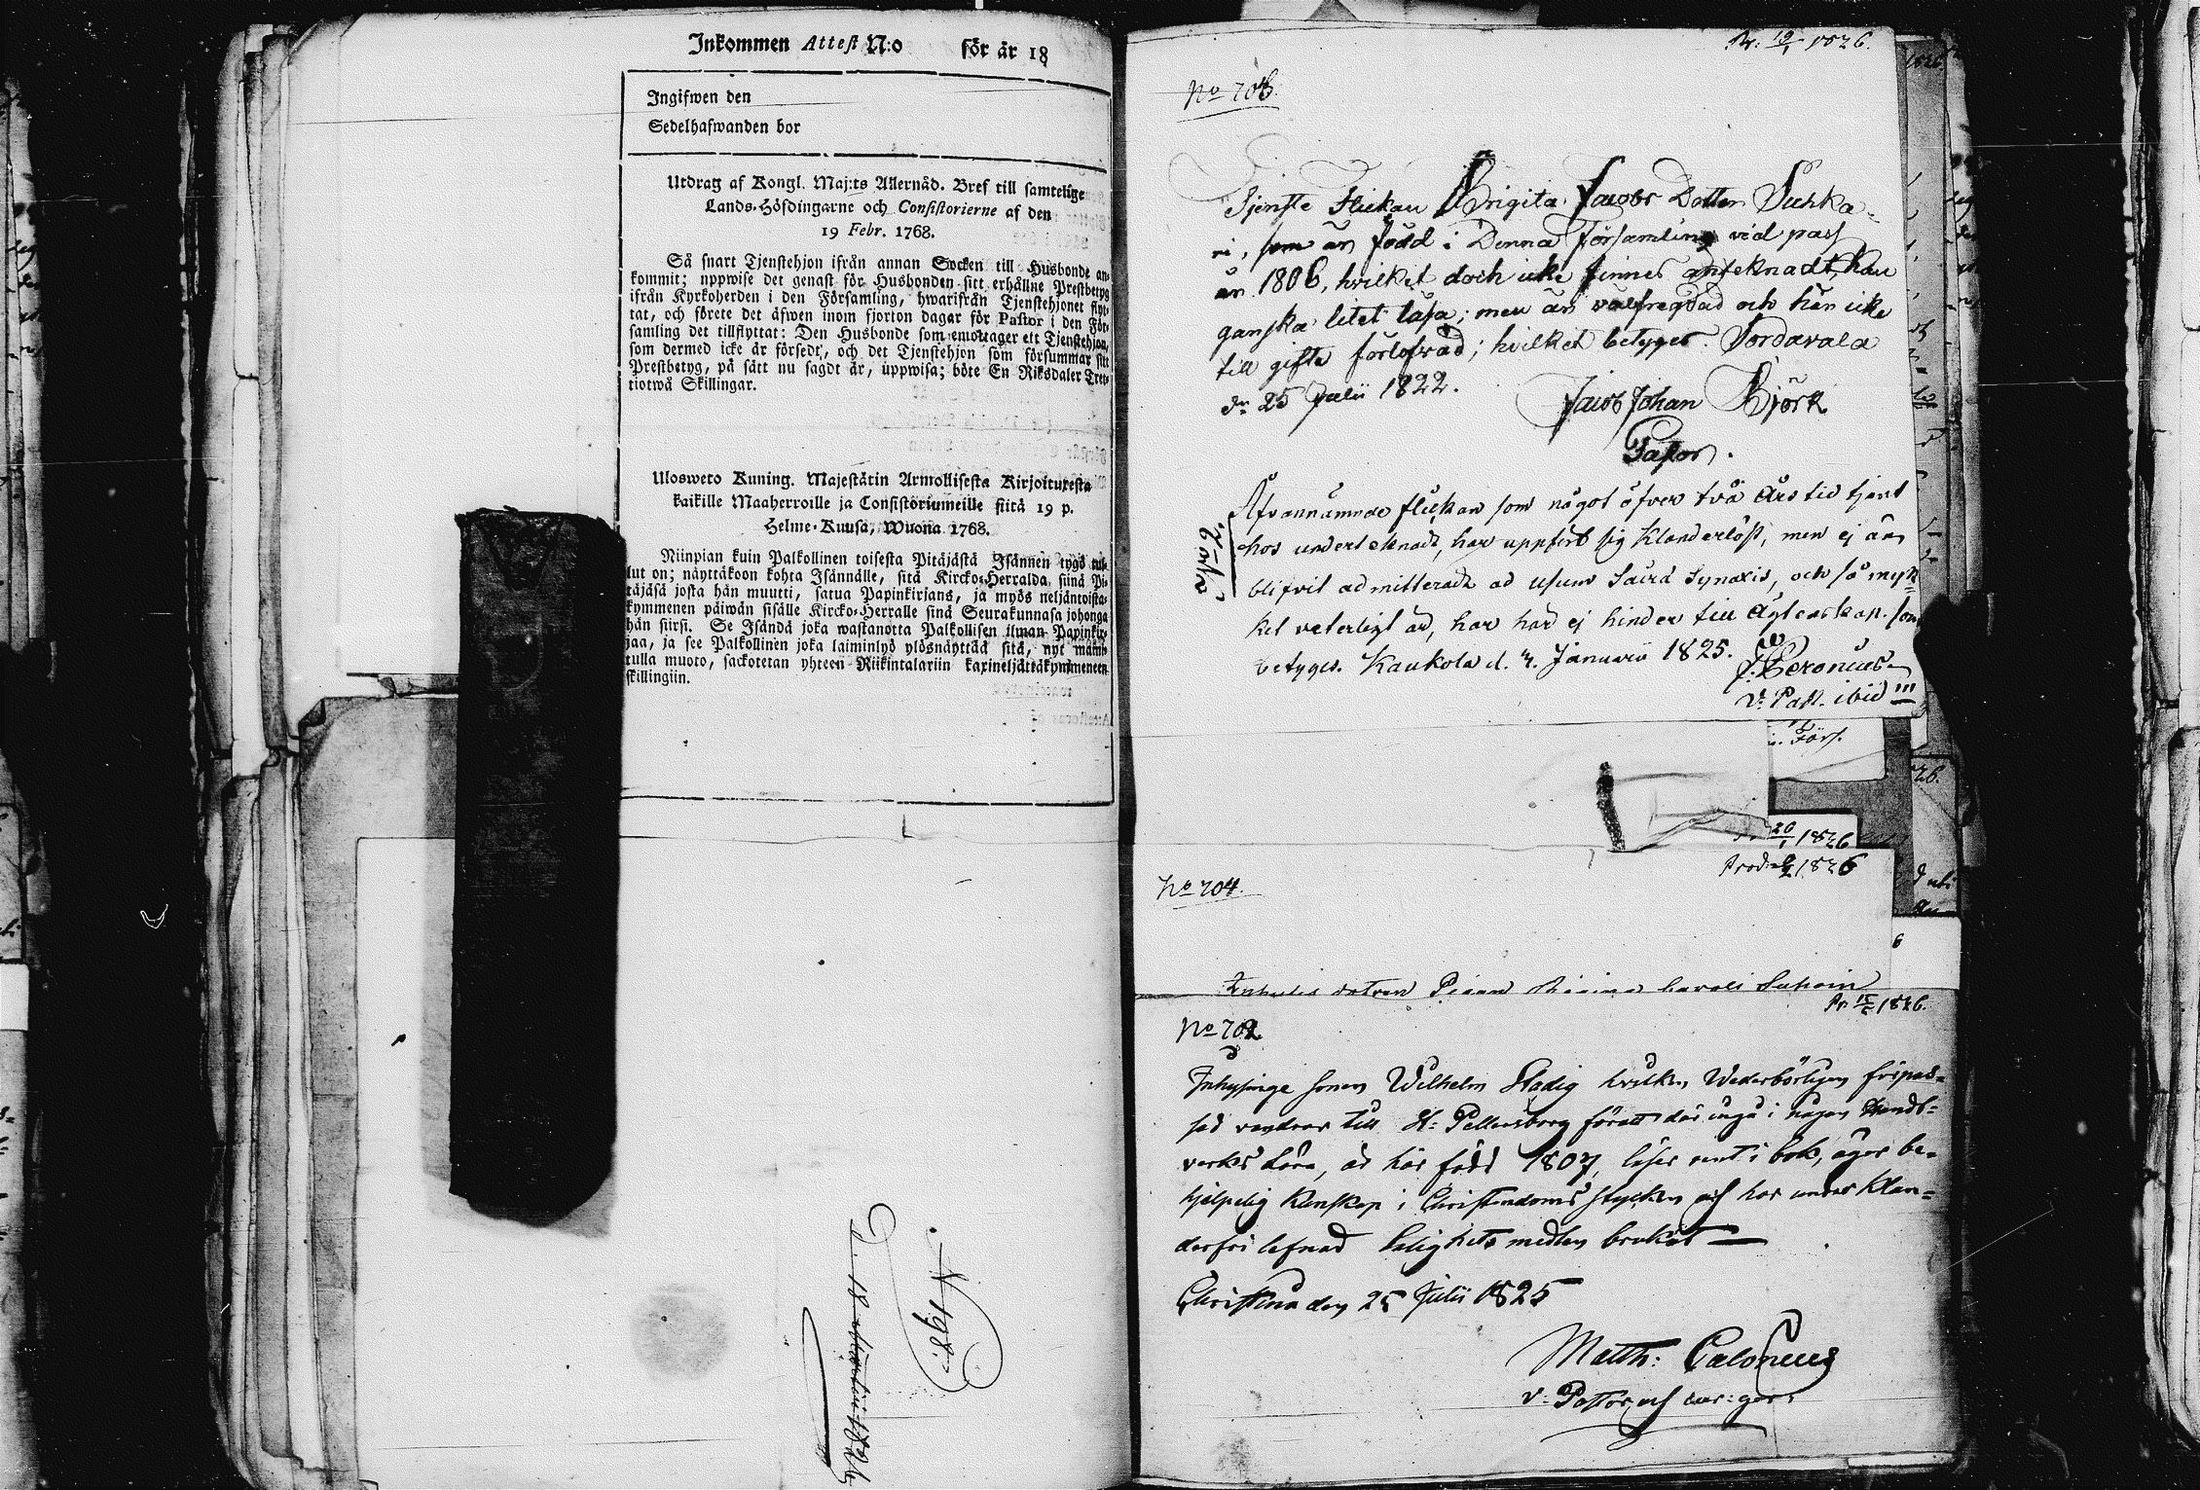 Inkommen Attest N:o för år 18
Ingifwen den
Sedelhafwanden bor
Utdrag af Kongl. Maj:ts Allernåd. Bref till samtelige
Lands-Höfdingarne och Consistorierne af den
19 Febr. 1768.
Så snart Tjenstehjon ifrån annan Socken till Husbonde an-
kommit; uppwise det genast för Husbonden sitt erhållne Prestbetyg
ifrån Kyrkoherden i den Församling, hwarifrån Tjenstehjonet flyt-
tat, och förete det äfwen inom fjorton dagar för Pastor i den För-
samling det tillflyttat: Den Husbonde som emottager ett Tjenstehjon,
som dermed icke är försedt, och det Tjenstehjon som försummar sitt
Prestbetyg, på sätt nu sagdt är, uppwisa; böte En Riksdaler Tret-
tiotwå Skillingar.
Ulosweto Kuning. Majestätin Armollisesta Kirjoituxesta
kaikille Maaherroille ja Consistoriumeille siitä 19 p.
Helme-Kuusa, Wuona 1768.
Niinpian kuin Palkollinen toisesta Pitäjästä Isännen tygö tul-
lut on; näyttäkoon kohta Isännälle, sitä Kircko-Herralda, siinä Pi-
täjäsä josta hän muutti, satua Papinkirjans, ja myös neljäntoista-
kymmenen päiwän sisälle Kircko-Herralle sinä Seurakunnasa johonga
hän siirsi. Se Isändä joka wastanotta Palkollisen ilman Papinkir-
jaa, ja see Palkollinen joka laiminlyö ylösnäyttää sitä, nyt mainit-
tulla muoto, sackotetan yhteen Riikintalariin kaxineljättäkymmeneen
skillingiin.
N 198:
Pr: 19/1 1826.
No 706.
Tjenste Flickan Brigita Jacobs Dotter Suhka-
ri, som är född i Denna Församling vid pass
år 1806, hvilket doch icke finnes anteknadt, kan
ganska litet läsa; men är välfregdad och här icke
till gifte förlofvad; hvilket betyges. Sordavala
dn 25 Julii 1822.
Jacob Johan Björk
Pastor.
Äfvannämnde flickan som något öfver två års tid tjent
hos undertecknad, har uppfört sig klanderlöst, men ej än
blifvit admitterad ad usum Sacræ Synaxis, och så myc-
ket veterligt är, har här ej hinder till ägtenskap. som
betyges. Kaukola d. 4. Januarii 1825.
V. Past. ibid m
n. Förs.
20/1 1826
Prod. 1826
No 704.
Pr: 15/5 1826.
No 702
Inhysinge sonen Wilhelm Stadig hvilken Wederbörligen förpas-
sad vandrar till St: Pettersborg föratt där ingå i någon Handt-
verks Lära, är här född 1807, läser rent i bok, äger be-
hjelpelig kunskap i Christendoms stycken och har under klan-
derfri lefnad Salighets medlen brukat —
Christina den 25 Julii 1825
Matth: Calonius
v: Pastor och